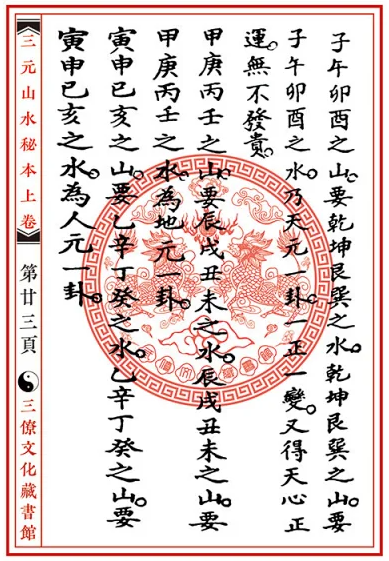 子午卯酉之山。要乾坤艮巽之水。乾坤艮巽之山。要
子午卯酉之水。乃天元一卦。一正一變。又得天心正
運。無不發貴。
甲庚丙壬之山。要辰戌丑未之水。辰戌丑未之山。要
甲庚丙壬之水。為地元一卦。
寅申已亥之山。要乙辛丁癸之水。乙辛丁癸之山。要
寅申已亥之水。為人元一卦。
【三元山水秘本上卷】
第廿三頁
三僚文化藏書館